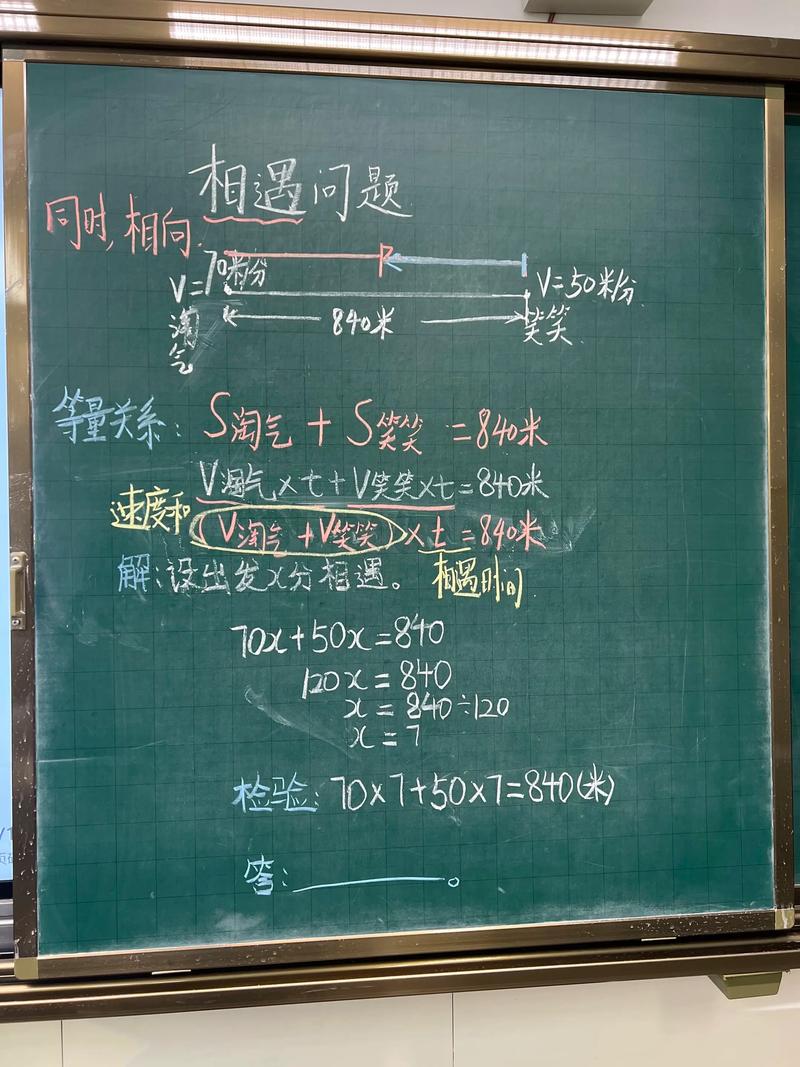 相遇问题
同时,相向.
V=70米/分
V=50米/分
淘气
840米
笑笑
等量关系: S淘气+S笑笑=840米
V淘气×t+V笑笑×t=840米
速度和 (V淘气+V笑笑)×t=840米
解:设出发x分相遇。 相遇时间
70x+50x=840
120x=840
x=840÷120
x=7
检验:70×7+50×7=840(米)
答: 。